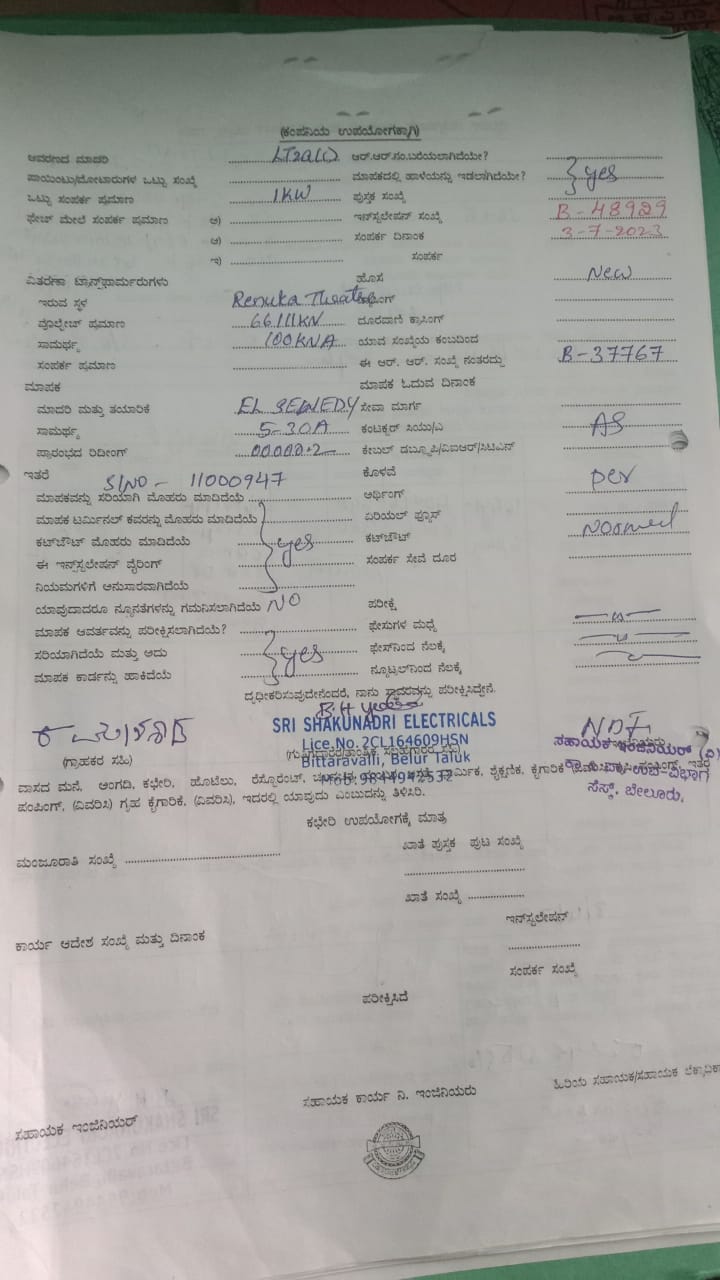 (ಕಂಪನಿಯ ಉಪಯೋಗಕ್ಕಾಗಿ)
ಆವರಣದ ಮಾದರಿ LT2a(i) ಆರ್.ಆರ್.ನಂ.ಬರೆಯಲಾಗಿದೆಯೇ?
ಪಾಯಿಂಟು/ಮೋಟಾರುಗಳ ಒಟ್ಟು ಸಂಖ್ಯೆ ಮಾಪಕದಲ್ಲಿ ಹಾಳೆಯನ್ನು ಇಡಲಾಗಿದೆಯೇ? yes
ಒಟ್ಟು ಸಂಪರ್ಕ ಪ್ರಮಾಣ 1KW ಪುಸ್ತಕ ಸಂಖ್ಯೆ
ಫೇಜ್ ಮೇಲೆ ಸಂಪರ್ಕ ಪ್ರಮಾಣ ಅ) ಇನ್‌ಸ್ಟಲೇಷನ್ ಸಂಖ್ಯೆ B-48929
ಆ) ಸಂಪರ್ಕ ದಿನಾಂಕ 3-7-2023
ಇ) ಸಂಪರ್ಕ
ವಿತರಣಾ ಟ್ರಾನ್ಸ್‌ಫಾರ್ಮರುಗಳು ಹೊಸ New
ಇರುವ ಸ್ಥಳ Renuka Theater
ವೋಲ್ಟೇಜ್ ಪ್ರಮಾಣ ದೂರವಾಣಿ ಕ್ರಾಸಿಂಗ್
ಸಾಮರ್ಥ್ಯ 100KVA ಯಾವ ಸಂಖ್ಯೆಯ ಕಂಬದಿಂದ
ಸಂಪರ್ಕ ಪ್ರಮಾಣ ಈ ಆರ್. ಆರ್. ಸಂಖ್ಯೆ ನಂತರದ್ದು B-37767
ಮಾಪಕ ಮಾಪಕ ಓದುವ ದಿನಾಂಕ
ಮಾದರಿ ಮತ್ತು ತಯಾರಿಕೆ EL SEWEDY ಸೇವಾ ಮಾರ್ಗ
ಸಾಮರ್ಥ್ಯ 5-30A ಕಂಟಕ್ಟರ್ ಸಿಯು/ಎ As
ಪ್ರಾರಂಭದ ರಿಡೀಂಗ್ 00000.2 ಕೇಬಲ್ ಡಬ್ಲ್ಯೂಪಿ/ವಿಐಆರ್/ಸಿಟಿಎಸ್
ಇತರೆ S/NO - 11000947 ಕೊಳವೆ per
ಮಾಪಕವನ್ನು ಸರಿಯಾಗಿ ಮೊಹರು ಮಾಡಿದೆಯೆ ಅರ್ಥಿಂಗ್
ಮಾಪಕ ಟರ್ಮಿನಲ್ ಕವರನ್ನು ಮೊಹರು ಮಾಡಿದೆಯೆ ಏರಿಯಲ್ ಫ್ಯೂಸ್
ಕಟ್‌ಔಟ್ ಮೊಹರು ಮಾಡಿದೆಯೆ yes ಕಟ್‌ಔಟ್
ಈ ಇನ್ಸ್‌ಸ್ಟಲೇಷನ್ ವೈರಿಂಗ್ ಸಂಪರ್ಕ ಸೇವೆ ದೂರ
ನಿಯಮಗಳಿಗೆ ಅನುಸಾರವಾಗಿದೆಯೆ
ಯಾವುದಾದರೂ ನ್ಯೂನತೆಗಳನ್ನು ಗಮನಿಸಲಾಗಿದೆಯೆ NO ಪರೀಕ್ಷೆ
ಮಾಪಕ ಆವರ್ತವನ್ನು ಪರೀಕ್ಷಿಸಲಾಗಿದೆಯೆ? ಫೇಸುಗಳ ಮಧ್ಯೆ
ಸರಿಯಾಗಿದೆಯೆ ಮತ್ತು ಅದು yes ಫೇಸ್‌ನಿಂದ ನೆಲಕ್ಕೆ
ಮಾಪಕ ಕಾರ್ಡನ್ನು ಹಾಕಿದೆಯೆ ನ್ಯೂಟ್ರಲ್‌ನಿಂದ ನೆಲಕ್ಕೆ
ದೃಢೀಕರಿಸುವುದೇನೆಂದರೆ, ನಾನು ಸ್ಥಾವರವನ್ನು ಪರೀಕ್ಷಿಸಿದ್ದೇನೆ.
SRI SHAKUNADRI ELECTRICALS
Lice.No.2CL164609HSN
(ಗ್ರಾಹಕರ ಸಹಿ) Bittaravalli, Belur Taluk
Mob:9844942532
ಸಹಾಯಕ ಇಂಜಿನಿಯರ್ (ವಿ)
ಸೆಸ್ಕ್, ಬೇಲೂರು.
ವಾಸದ ಮನೆ, ಅಂಗಡಿ, ಕಛೇರಿ, ಹೊಟೆಲು, ರೆಸ್ಟೋರೆಂಟ್, ಶೈಕ್ಷಣಿಕ, ಕೈಗಾರಿಕೆ
ಪಂಪಿಂಗ್, (ವಿವರಿಸಿ) ಗೃಹ ಕೈಗಾರಿಕೆ, (ವಿವರಿಸಿ), ಇದರಲ್ಲಿ ಯಾವುದು ಎಂಬುದನ್ನು ತಿಳಿಸಿರಿ.
ಕಛೇರಿ ಉಪಯೋಗಕ್ಕೆ ಮಾತ್ರ
ಮಂಜೂರಾತಿ ಸಂಖ್ಯೆ ಖಾತೆ ಪುಸ್ತಕ ಪುಟ ಸಂಖ್ಯೆ
ಖಾತೆ ಸಂಖ್ಯೆ
ಇನ್‌ಸ್ಟಲೇಷನ್
ಕಾರ್ಯ ಆದೇಶ ಸಂಖ್ಯೆ ಮತ್ತು ದಿನಾಂಕ
ಸಂಪರ್ಕ ಸಂಖ್ಯೆ
ಪರೀಕ್ಷಿಸಿದೆ
ಸಹಾಯಕ ಇಂಜಿನಿಯರ್ ಸಹಾಯಕ ಕಾರ್ಯ ನಿ. ಇಂಜಿನಿಯರು ಹಿರಿಯ ಸಹಾಯಕ/ಸಹಾಯಕ